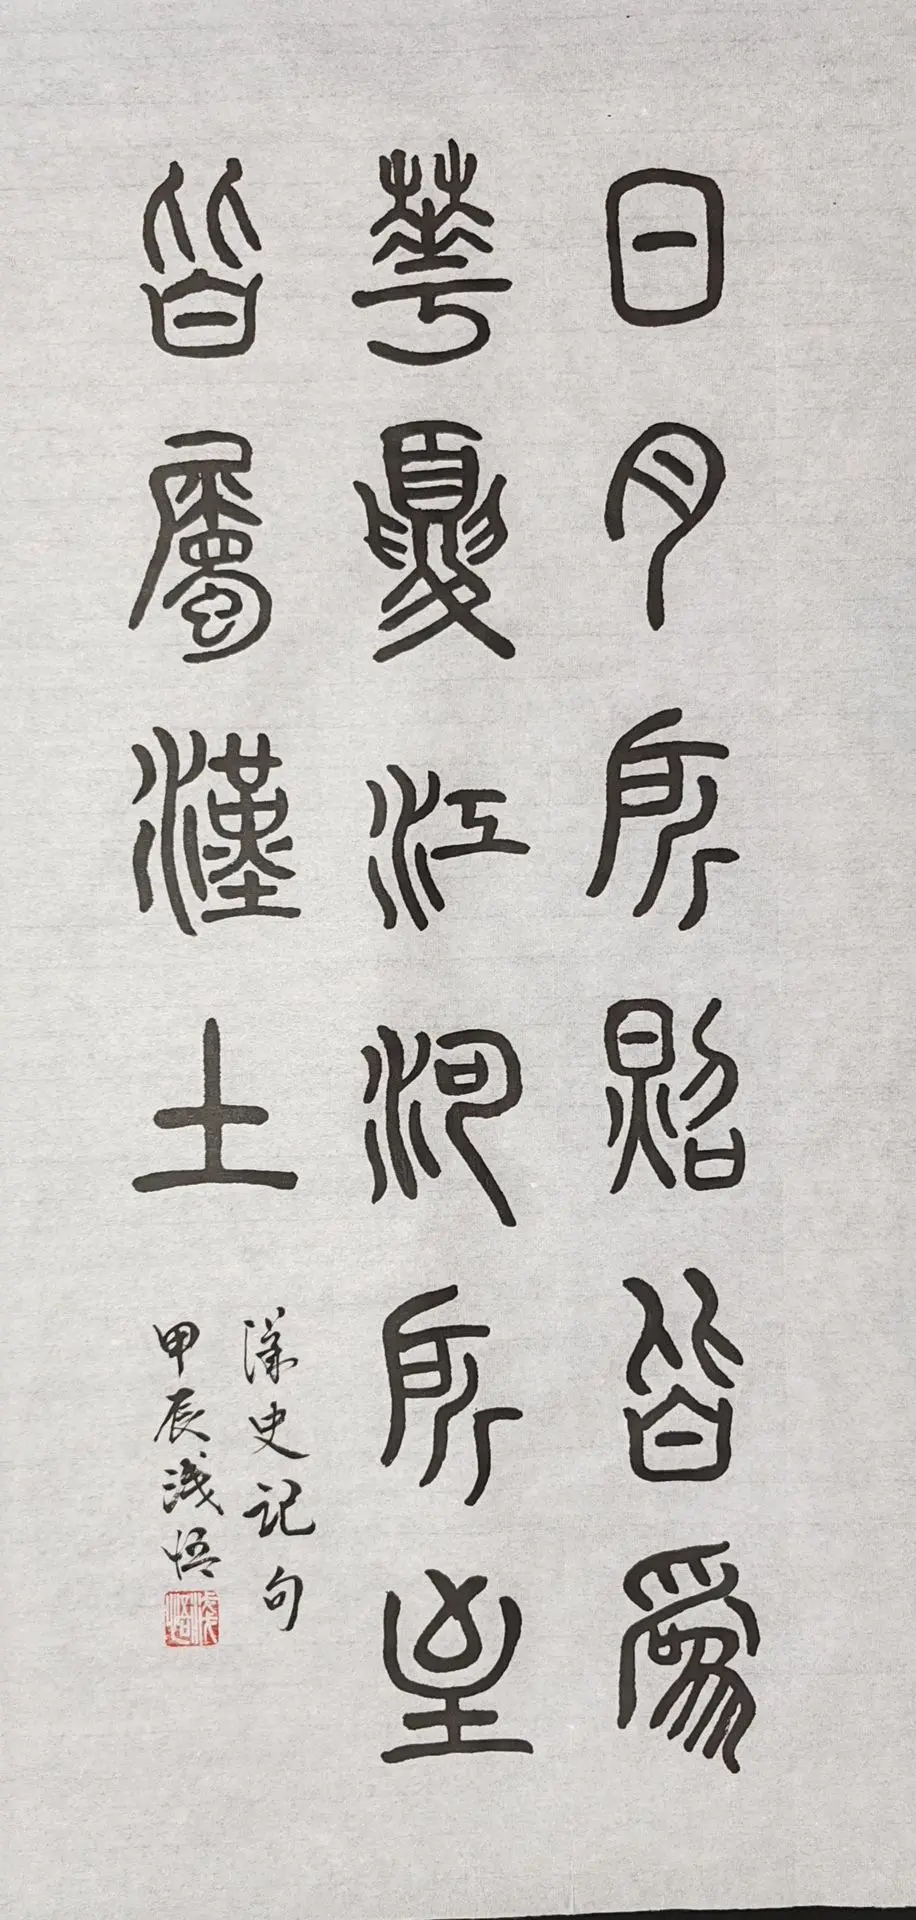 日月所照皆爲
華夏江河所至
皆屬漢土
漢史記句
甲辰淺悟